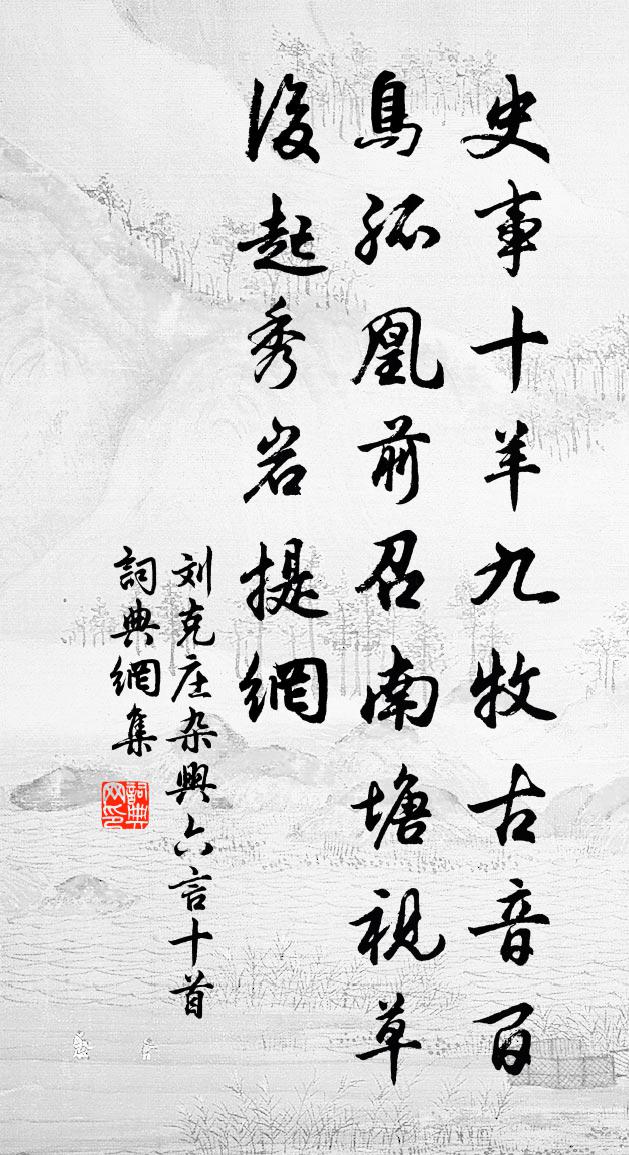 史事十羊九牧古音百
鳥孤凰前召南塘視草
後起秀岩提綱
刘克庄杂興六言十首
詞典網集
詞典网印